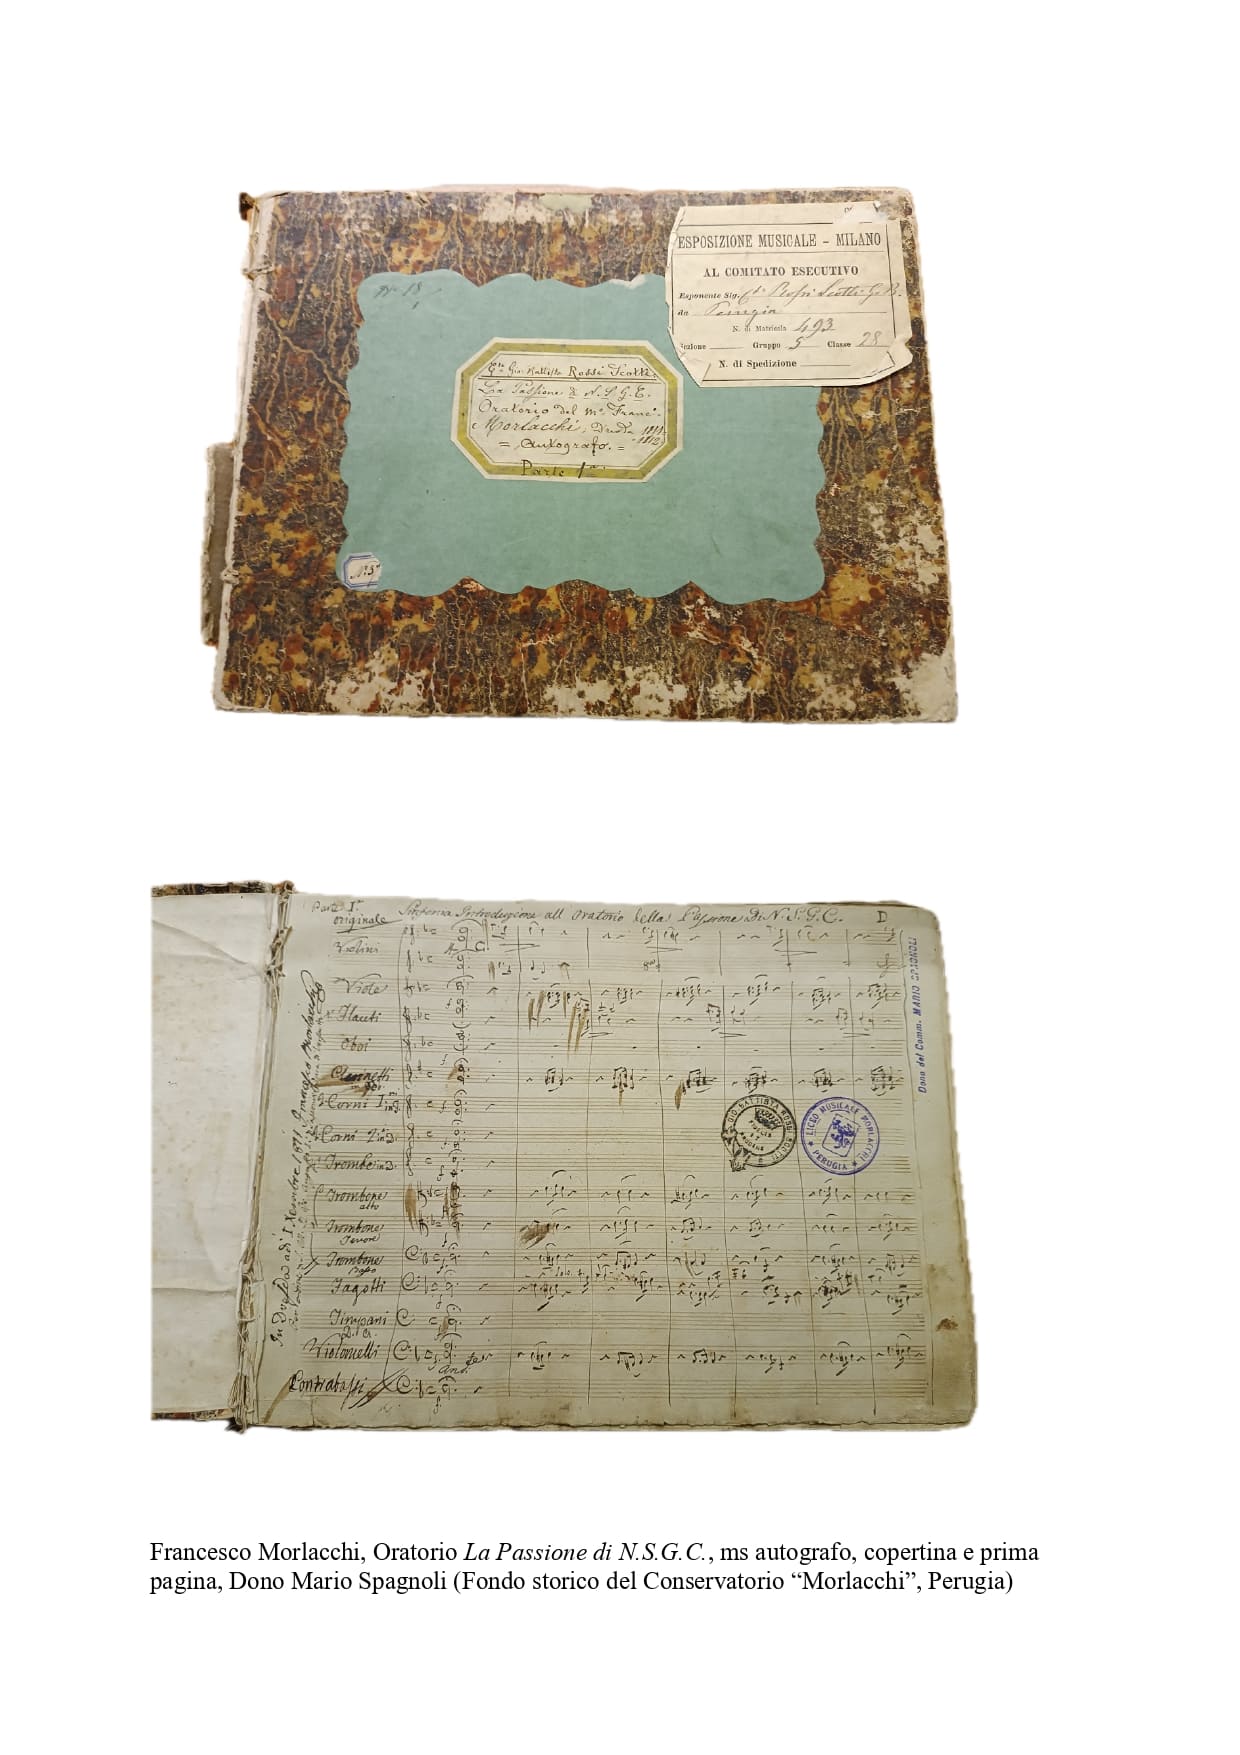 Nº 18
ESPOSIZIONE MUSICALE – MILANO
AL COMITATO ESECUTIVO
Esponente Sig. Cte Rossi Scotti G. B.
da Perugia
N. di Matricola 493
Sezione Gruppo 5 Classe 28
N. di Spedizione
Cte Gio. Battista Rossi Scotti
La Passione di N. S. G. C.
Oratorio del Mº Franc.
Morlacchi, Dresda 1811
1812
= Autografo. =
Parte 1a
Nº 3º
Parte Iª
originale
Sinfonia Introduzione all Oratorio della Passione Di N. S. G. C.
D
Violini
Viole
Flauti
Oboi
Clarinetti
Corni I
Corni 2
Trombe in
Trombone
alto
Trombone
Tenore
Trombone
Basso
Fagotti
Timpani
Violoncelli
Contrabassi
In Dresda
Morlacchi
GIO. BATTISTA ROSSI SCOTTI
LICEO MUSICALE MORLACCHI
★ PERUGIA ★
Dono del Comm. MARIO SPAGNOLI
Francesco Morlacchi, Oratorio La Passione di N.S.G.C., ms autografo, copertina e prima
pagina, Dono Mario Spagnoli (Fondo storico del Conservatorio “Morlacchi”, Perugia)